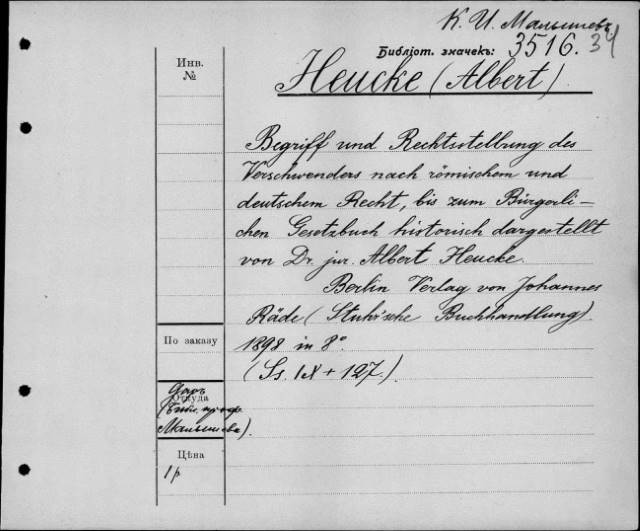 К. И. Малышевъ
Библіот. значекъ: 3516. 34
Инв.
№
Heucke (Albert)
Begriff und Rechtsstellung des
Verschwenders nach römischem und
deutschem Recht, bis zum Bürgerli-
chen Gesetzbuch historisch dargestellt
von Dr. jur. Albert Heucke.
Berlin Verlag von Johannes
Räde (Stuhr'sche Buchhandlung).
По заказу
1898 in 8°
(Ss. IX + 127.)
Даръ
Откуда
(Библ. проф.
Малышева).
Цѣна
1 р